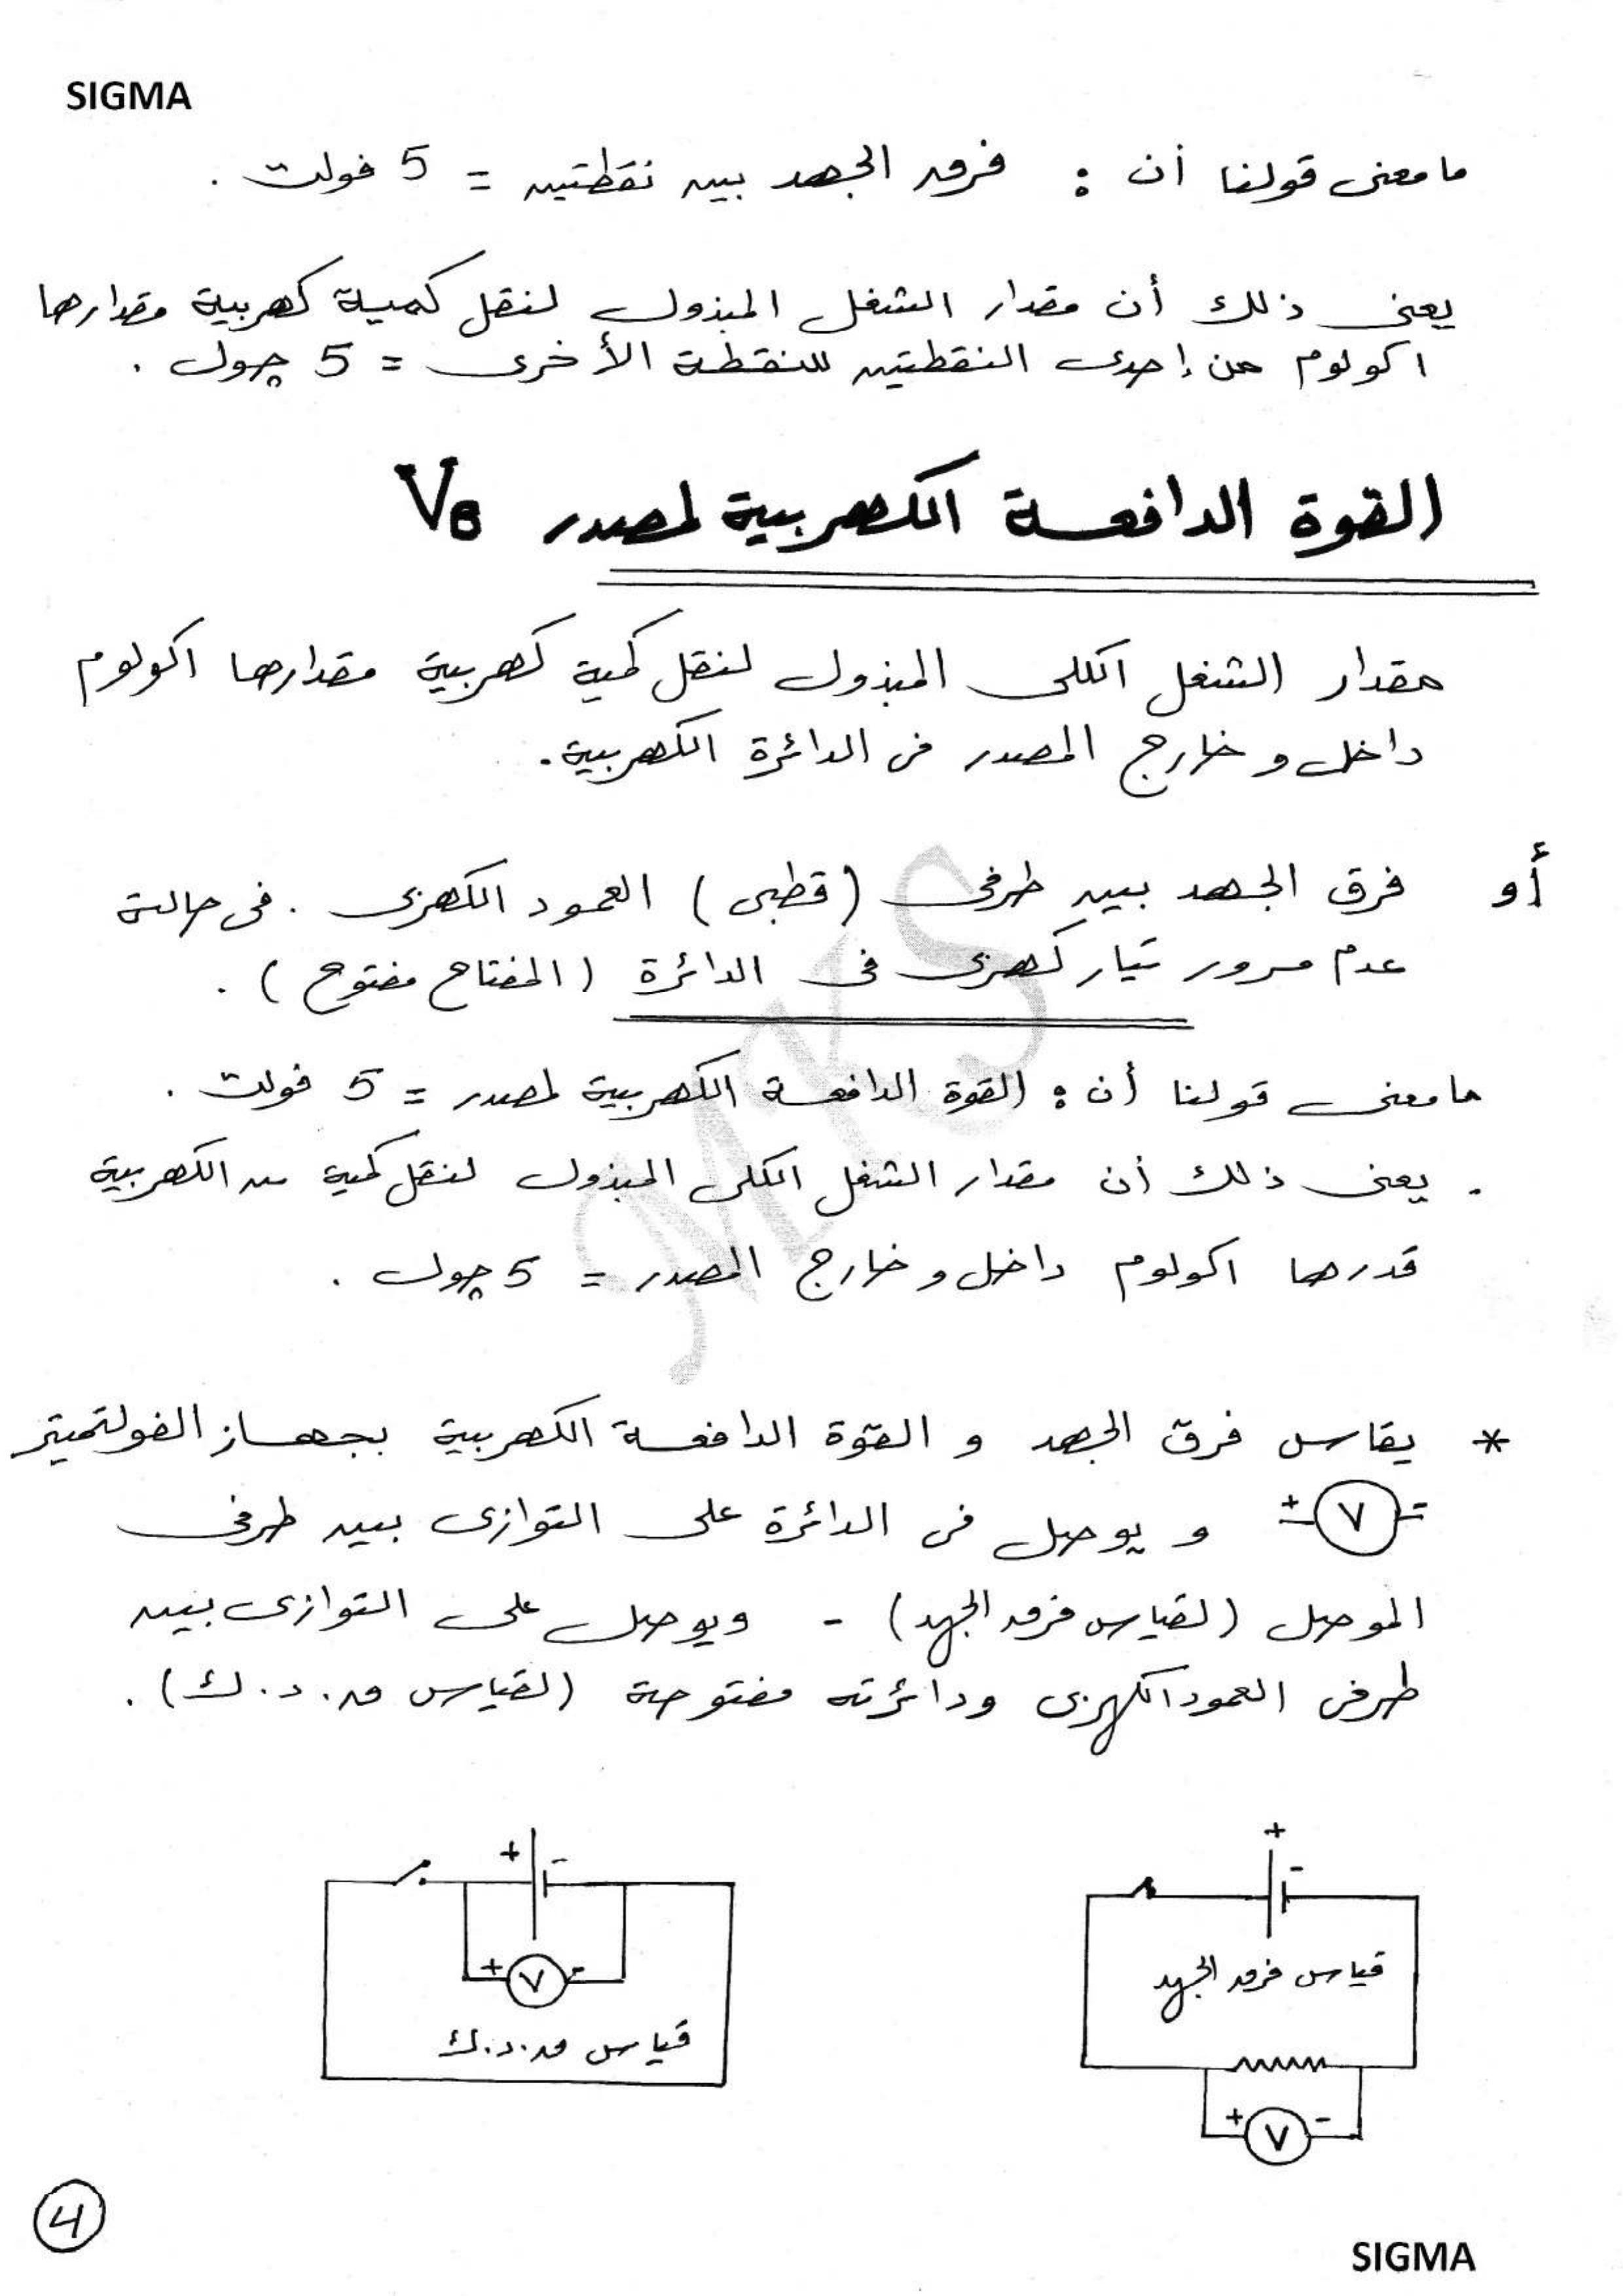 SIGMA
ما معنى قولنا أن : فرق الجهد بين نقطتين = 5 فولت .
يعنى ذلك أن مقدار الشغل المبذول لنقل كمية كهربية مقدارها
1 كولوم من إحدى النقطتين للنقطة الأخرى = 5 چول .
القوة الدافعة الكهربية لمصدر VB
مقدار الشغل الكلى المبذول لنقل كمية كهربية مقدارها 1 كولوم
داخل و خارج المصدر فى الدائرة الكهربية .
أو فرق الجهد بين طرفى ( قطبى ) العمود الكهربى . فى حالة
عدم مرور تيار كهربى فى الدائرة ( المفتاح مفتوح ) .
ما معنى قولنا أن : القوة الدافعة الكهربية لمصدر = 5 فولت .
. يعنى ذلك أن مقدار الشغل الكلى المبذول لنقل كمية من الكهربية
قدرها 1 كولوم داخل و خارج المصدر = 5 چول .
MKS
* يقاس فرق الجهد و القوة الدافعة الكهربية بجهاز الفولتميتر
+ V - و يوصل فى الدائرة على التوازى بين طرفى
الموصل ( لقياس فرق الجهد ) - ويوصل على التوازى بين
طرفى العمود الكهربى ودائرته مفتوحة ( لقياس ق . د . ك ) .
+ -
قياس فرق الجهد
+ V -
+ -
+ V -
قياس ق . د . ك
4
SIGMA